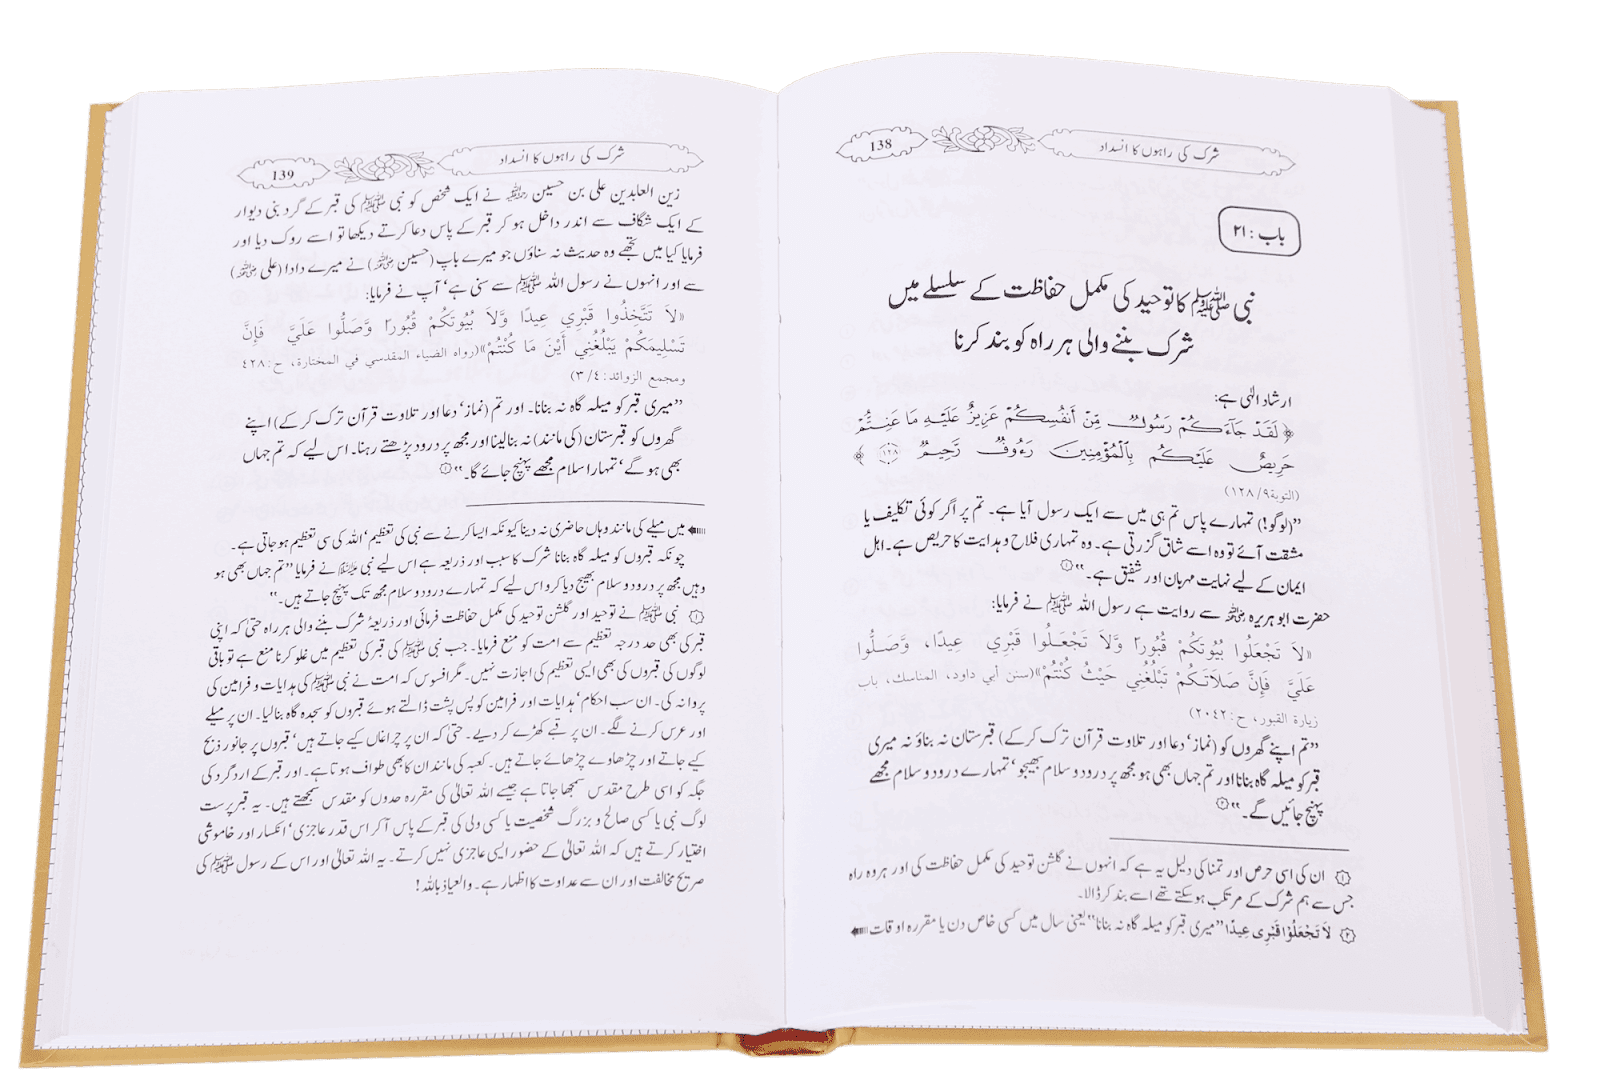 138
شرک کی راہوں کا انسداد
باب : ۲۱
نبی ﷺ کا توحید کی مکمل حفاظت کے سلسلے میں
شرک بننے والی ہر راہ کو بند کرنا
ارشاد الٰہی ہے:
﴿ لَقَدْ جَاءَكُمْ رَسُولٌ مِّنْ أَنفُسِكُمْ عَزِيزٌ عَلَيْهِ مَا عَنِتُّمْ
حَرِيصٌ عَلَيْكُم بِالْمُؤْمِنِينَ رَءُوفٌ رَّحِيمٌ ١٢٨ ﴾
(التوبة٩/١٢٨)
”(لوگو!) تمہارے پاس تم ہی میں سے ایک رسول آیا ہے۔ تم پر اگر کوئی تکلیف یا
مشقت آئے تو وہ اسے شاق گزرتی ہے۔ وہ تمہاری فلاح و ہدایت کا حریص ہے۔ اہل
ایمان کے لیے نہایت مہربان اور شفیق ہے۔“ ①
حضرت ابو ہریرہ رضی اللہ عنہ سے روایت ہے رسول اللہ ﷺ نے فرمایا:
«لَا تَجْعَلُوا بُيُوتَكُمْ قُبُورًا وَّلَا تَجْعَلُوا قَبْرِي عِيدًا، وَّصَلُّوا
عَلَيَّ فَإِنَّ صَلَاتَكُمْ تَبْلُغُنِي حَيْثُ كُنْتُمْ»(سنن أبي داود، المناسك، باب
زيارة القبور، ح:٢٠٤٢)
”تم اپنے گھروں کو (نماز‘ دعا اور تلاوت قرآن ترک کرکے) قبرستان نہ بناؤ نہ میری
قبر کو میلہ گاہ بنانا اور تم جہاں بھی ہو مجھ پر درود و سلام بھیجو‘ تمہارے درود و سلام مجھے
پہنچ جائیں گے۔“ ②
① ان کی اسی حرص اور تمنا کی دلیل یہ ہے کہ انہوں نے گلشن توحید کی مکمل حفاظت کی اور ہر وہ راہ
جس سے ہم شرک کے مرتکب ہوسکتے تھے اسے بند کر ڈالا۔
② لَا تَجْعَلُوْا قَبْرِى عِيدًا ”میری قبر کو میلہ گاہ نہ بنانا“ یعنی سال میں کسی خاص دن یا مقررہ اوقات
139
شرک کی راہوں کا انسداد
زین العابدین علی بن حسین رحمہ اللہ نے ایک شخص کو نبی ﷺ کی قبر کے گرد بنی دیوار
کے ایک شگاف سے اندر داخل ہو کر قبر کے پاس دعا کرتے دیکھا تو اسے روک دیا اور
فرمایا کیا میں تجھے وہ حدیث نہ سناؤں جو میرے باپ (حسین رضی اللہ عنہ) نے میرے دادا (علی رضی اللہ عنہ)
سے اور انہوں نے رسول اللہ ﷺ سے سنی ہے‘ آپ نے فرمایا:
«لَا تَتَّخِذُوا قَبْرِي عِيدًا وَّلَا بُيُوتَكُمْ قُبُورًا وَّصَلُّوا عَلَيَّ فَإِنَّ
تَسْلِيمَكُمْ يَبْلُغُنِي أَيْنَ مَا كُنْتُمْ»(رواه الضياء المقدسي في المختارة، ح:٤٢٨
ومجمع الزوائد:٤/٣)
”میری قبر کو میلہ گاہ نہ بنانا۔ اور تم (نماز‘ دعا اور تلاوت قرآن ترک کرکے) اپنے
گھروں کو قبرستان (کی مانند) نہ بنالینا اور مجھ پر درود پڑھتے رہنا۔ اس لیے کہ تم جہاں
بھی ہوگے‘ تمہارا سلام مجھے پہنچ جائے گا۔“ ①
میں میلے کی مانند وہاں حاضری نہ دینا کیونکہ ایسا کرنے سے نبی کی تعظیم‘ اللہ کی سی تعظیم ہو جاتی ہے۔
چونکہ قبروں کو میلہ گاہ بنانا شرک کا سبب اور ذریعہ ہے اس لیے نبی ﷺ نے فرمایا ”تم جہاں بھی ہو
وہیں مجھ پر درود و سلام بھیج دیا کرو اس لیے کہ تمہارے درود و سلام مجھ تک پہنچ جاتے ہیں۔“
① نبی ﷺ نے توحید اور گلشن توحید کی مکمل حفاظت فرمائی اور ذریعۂ شرک بننے والی ہر راہ حتیٰ کہ اپنی
قبر کی بھی حد درجہ تعظیم سے امت کو منع فرمایا۔ جب نبی ﷺ کی قبر کی تعظیم میں غلو کرنا منع ہے تو باقی
لوگوں کی قبروں کی بھی ایسی تعظیم کی اجازت نہیں۔ مگر افسوس کہ امت نے نبی ﷺ کی ہدایات و فرامین کی
پروا نہ کی۔ ان سب احکام‘ ہدایات اور فرامین کو پس پشت ڈالتے ہوئے قبروں کو سجدہ گاہ بنالیا۔ ان پر میلے
اور عرس کرنے لگے۔ ان پر قبے کھڑے کر دیے۔ حتیٰ کہ ان پر چراغاں کیے جاتے ہیں‘ قبروں پر جانور ذبح
کیے جاتے اور چڑھاوے چڑھائے جاتے ہیں۔ کعبہ کی مانند ان کا بھی طواف ہوتا ہے۔ اور قبر کے ارد گرد کی
جگہ کو اسی طرح مقدس سمجھا جاتا ہے جیسے اللہ تعالیٰ کی مقررہ حدوں کو مقدس سمجھتے ہیں۔ یہ قبر پرست
لوگ نبی یا کسی صالح و بزرگ شخصیت یا کسی ولی کی قبر کے پاس آکر اس قدر عاجزی‘ انکسار اور خاموشی
اختیار کرتے ہیں کہ اللہ تعالیٰ کے حضور ایسی عاجزی نہیں کرتے۔ یہ اللہ تعالیٰ اور اس کے رسول ﷺ کی
صریح مخالفت اور ان سے عداوت کا اظہار ہے۔ والعیاذ باللہ!